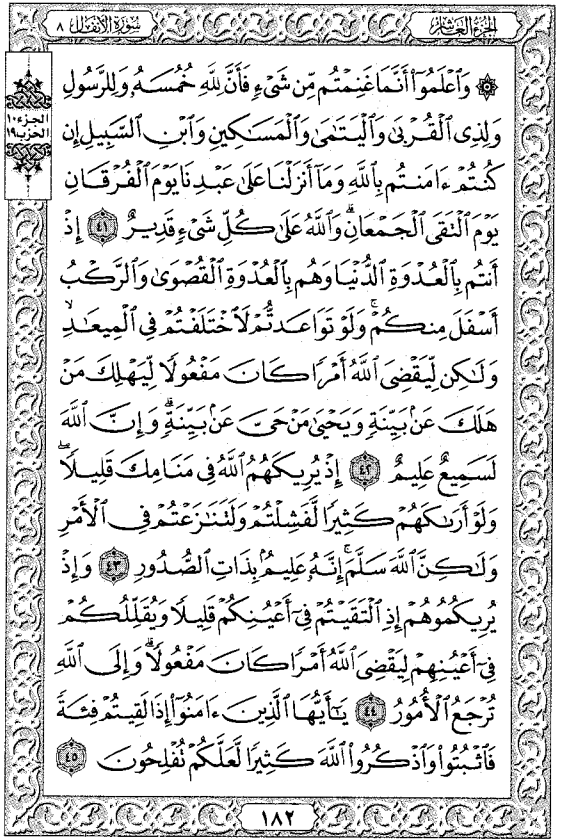 الجزء العاشر
سورة الأنفال ٨
الجزء ١٠
الحزب ١٩
۞ وَٱعْلَمُوٓا۟ أَنَّمَا غَنِمْتُم مِّن شَىْءٍ فَأَنَّ لِلَّهِ خُمُسَهُۥ وَلِلرَّسُولِ
وَلِذِى ٱلْقُرْبَىٰ وَٱلْيَتَـٰمَىٰ وَٱلْمَسَـٰكِينِ وَٱبْنِ ٱلسَّبِيلِ إِن
كُنتُمْ ءَامَنتُم بِٱللَّهِ وَمَآ أَنزَلْنَا عَلَىٰ عَبْدِنَا يَوْمَ ٱلْفُرْقَانِ
يَوْمَ ٱلْتَقَى ٱلْجَمْعَانِ ۗ وَٱللَّهُ عَلَىٰ كُلِّ شَىْءٍ قَدِيرٌ ٤١ إِذْ
أَنتُم بِٱلْعُدْوَةِ ٱلدُّنْيَا وَهُم بِٱلْعُدْوَةِ ٱلْقُصْوَىٰ وَٱلرَّكْبُ
أَسْفَلَ مِنكُمْ ۚ وَلَوْ تَوَاعَدتُّمْ لَٱخْتَلَفْتُمْ فِى ٱلْمِيعَـٰدِ ۙ
وَلَـٰكِن لِّيَقْضِىَ ٱللَّهُ أَمْرًا كَانَ مَفْعُولًا لِّيَهْلِكَ مَنْ
هَلَكَ عَنۢ بَيِّنَةٍ وَيَحْيَىٰ مَنْ حَىَّ عَنۢ بَيِّنَةٍ ۗ وَإِنَّ ٱللَّهَ
لَسَمِيعٌ عَلِيمٌ ٤٢ إِذْ يُرِيكَهُمُ ٱللَّهُ فِى مَنَامِكَ قَلِيلًا ۖ
وَلَوْ أَرَىٰكَهُمْ كَثِيرًا لَّفَشِلْتُمْ وَلَتَنَـٰزَعْتُمْ فِى ٱلْأَمْرِ
وَلَـٰكِنَّ ٱللَّهَ سَلَّمَ ۗ إِنَّهُۥ عَلِيمٌۢ بِذَاتِ ٱلصُّدُورِ ٤٣ وَإِذْ
يُرِيكُمُوهُمْ إِذِ ٱلْتَقَيْتُمْ فِىٓ أَعْيُنِكُمْ قَلِيلًا وَيُقَلِّلُكُمْ
فِىٓ أَعْيُنِهِمْ لِيَقْضِىَ ٱللَّهُ أَمْرًا كَانَ مَفْعُولًا ۗ وَإِلَى ٱللَّهِ
تُرْجَعُ ٱلْأُمُورُ ٤٤ يَـٰٓأَيُّهَا ٱلَّذِينَ ءَامَنُوٓا۟ إِذَا لَقِيتُمْ فِئَةً
فَٱثْبُتُوا۟ وَٱذْكُرُوا۟ ٱللَّهَ كَثِيرًا لَّعَلَّكُمْ تُفْلِحُونَ ٤٥
١٨٢